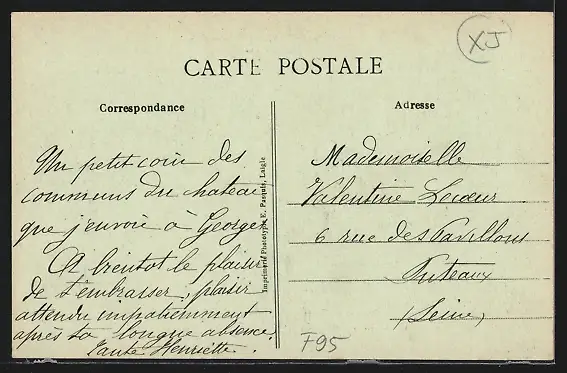 XJ
CARTE POSTALE
Correspondance
Un petit coin des
communs du chateau
que j'envoie à Georges
A bientot le plaisir
de t'embrasser, plaisir
attendu impatiemment
après ta longue absence.
Tante Henriette.
Imprimerie Phototypie E. Pasquis, Laigle
Adresse
Mademoiselle
Valentine Lecœur
6 rue des Pavillons
Puteaux
(Seine)
F95